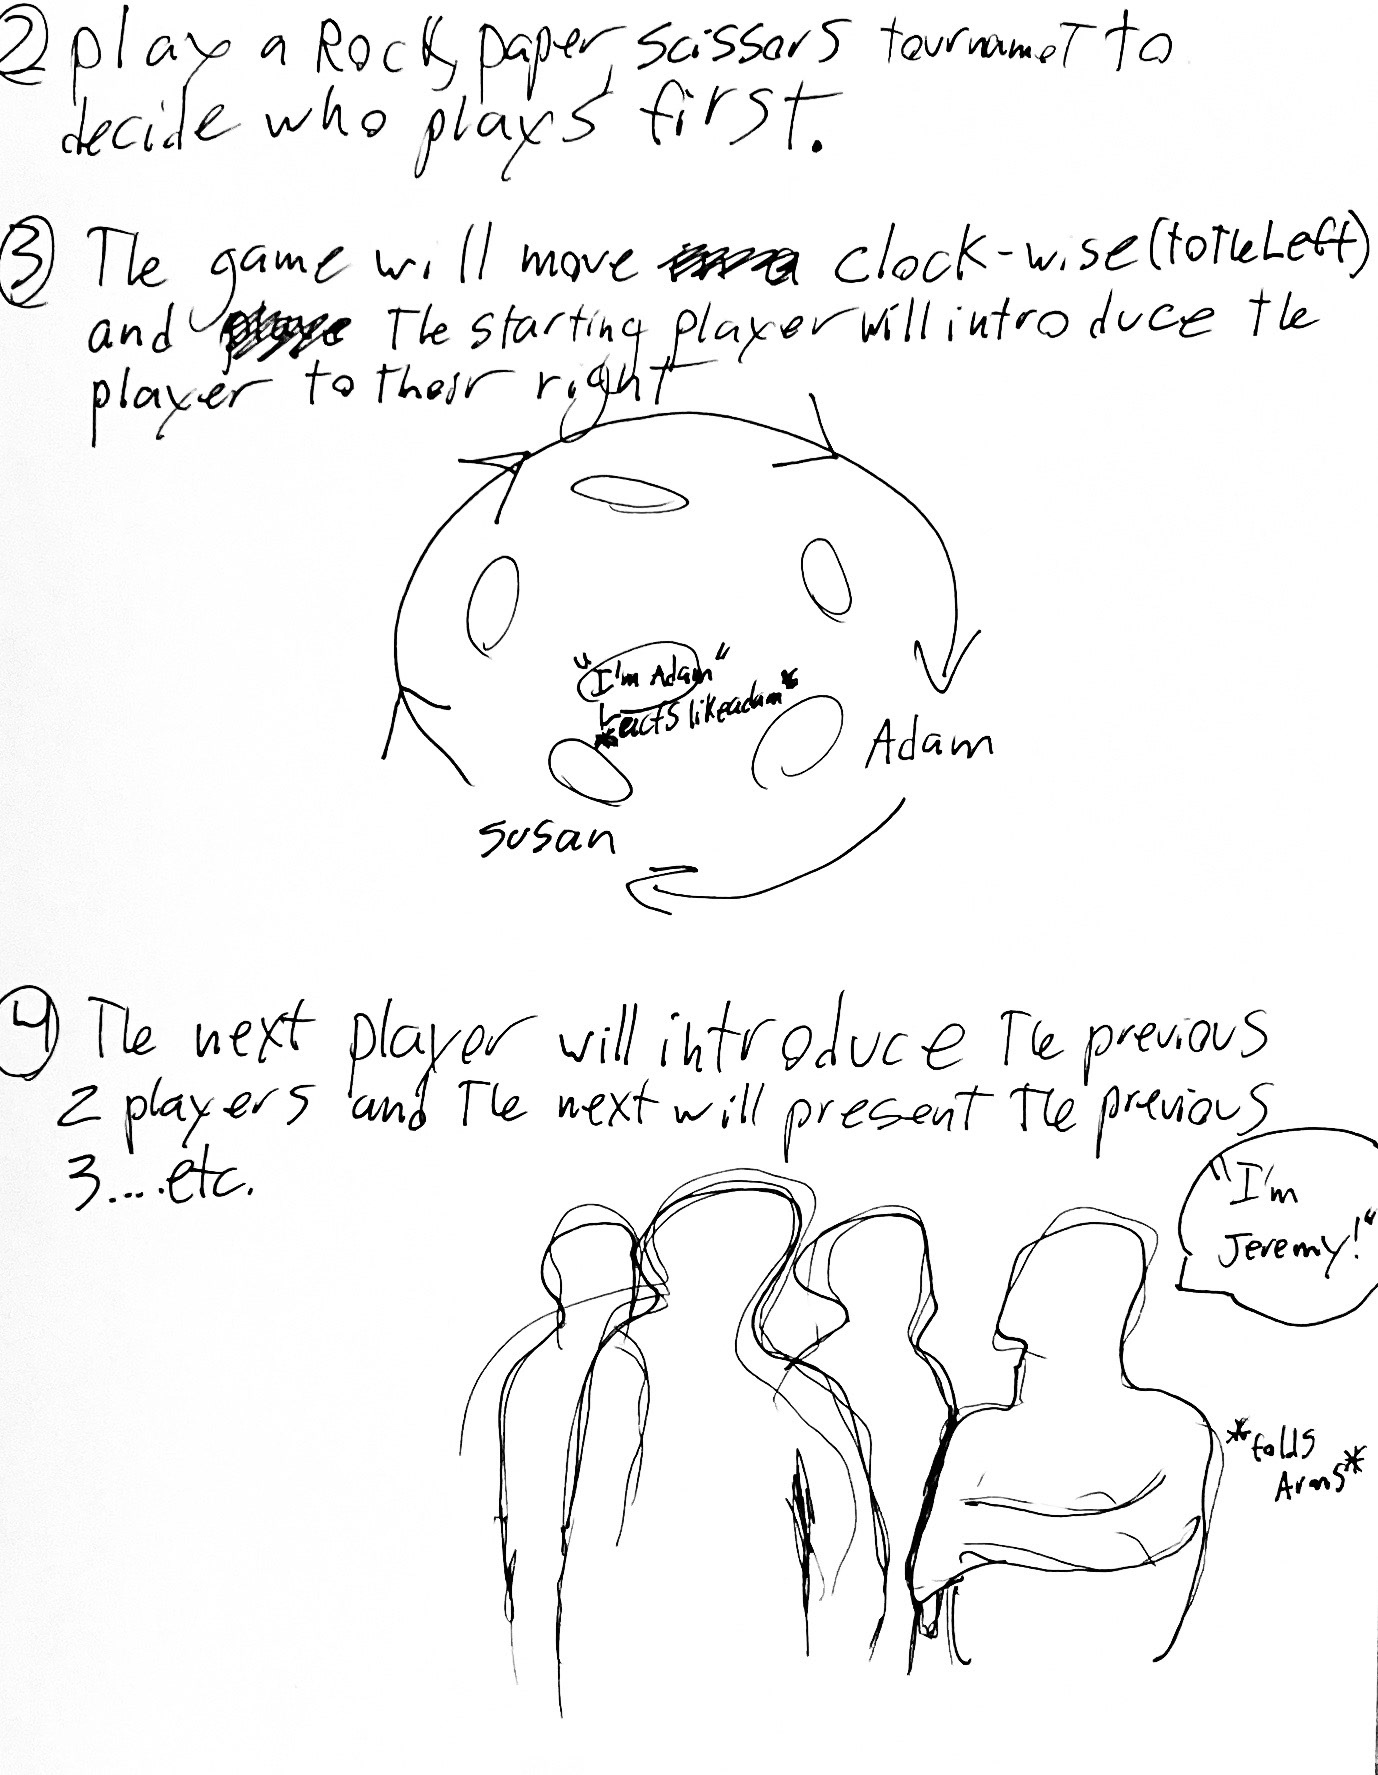 ② play a Rock, paper, scissors tournamet to
decide who plays first.
③ The game will move clock-wise (to the Left)
and The starting player will introduce the
player to their right
"I'm Adam"
*acts like adam*
Adam
Susan
④ The next player will introduce The previous
2 players and The next will present The previous
3....etc.
"I'm
Jeremy!"
*folds
Arms*